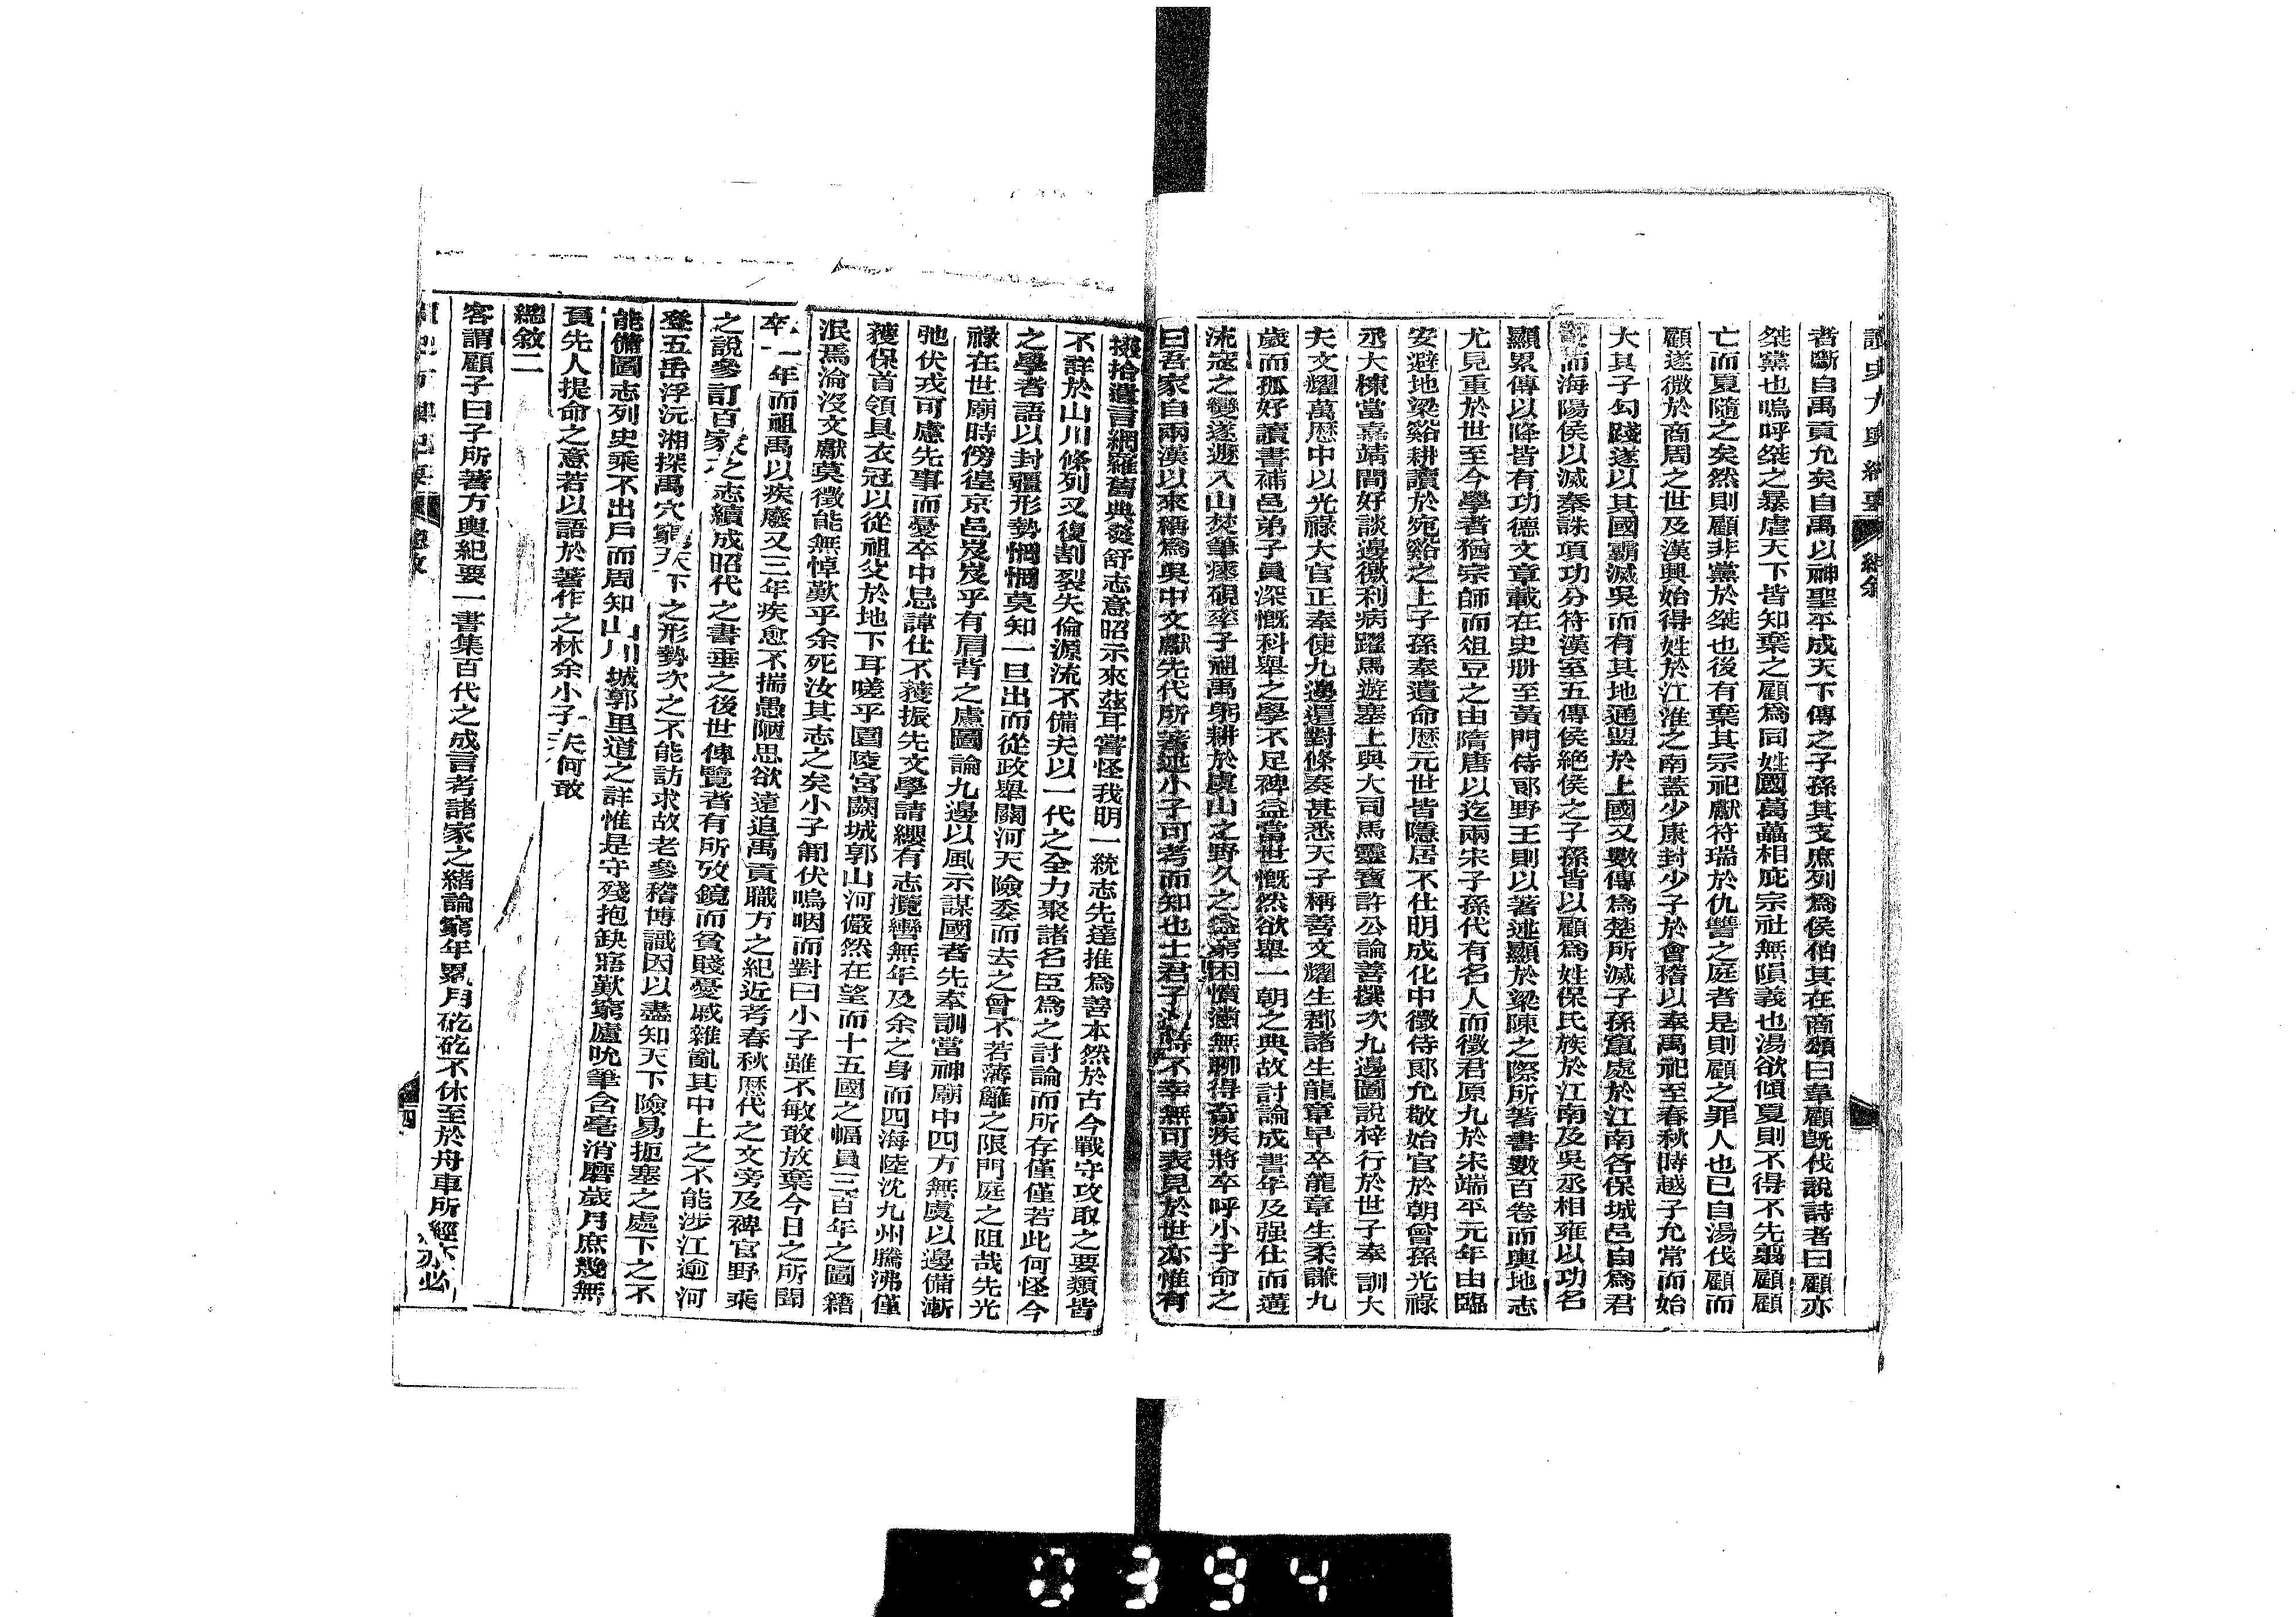 讀史方輿紀要 總敘
者斷自禹貢允矣自禹以神聖平成天下傳之子孫其支庶列爲侯伯其在商頌曰韋顧旣伐說詩者曰顧亦
桀黨也嗚呼桀之暴虐天下皆知棄之顧爲同姓國葛藟相庇宗社無隕義也湯欲傾夏則不得不先翦顧顧
亡而夏隨之矣然則顧非黨於桀也後有棄其宗祀獻符瑞於仇讐之庭者是則顧之罪人也已自湯伐顧而
顧遂微於商周之世及漢興始得姓於江淮之南蓋少康封少子於會稽以奉禹祀至春秋時越子允常而始
大其子勾踐遂以其國霸滅吳而有其地通盟於上國又數傳爲楚所滅子孫竄處於江南各保城邑自爲君
長而海陽侯以滅秦誅項功分符漢室五傳侯絶侯之子孫皆以顧爲姓保氏族於江南及吳丞相雍以功名
顯累傳以降皆有功德文章載在史册至黃門侍郎野王則以著述顯於梁陳之際所著書數百卷而輿地志
尤見重於世至今學者猶宗師而俎豆之由隋唐以迄兩宋子孫代有名人而徵君原九於宋端平元年由臨
安避地梁谿耕讀於宛谿之上子孫奉遺命歷元世皆隱居不仕明成化中徵侍郎允敬始官於朝曾孫光祿
丞大棟當嘉靖間好談邊徼利病躍馬遊塞上與大司馬靈寶許公論善撰次九邊圖說梓行於世子奉訓大
夫文耀萬歷中以光祿大官正奉使九邊還對條奏甚悉天子稱善文耀生郡諸生龍章早卒龍章生柔謙九
歲而孤好讀書補邑弟子員深慨科舉之學不足裨益當世慨然欲舉一朝之典故討論成書年及强仕而遘
流寇之變遂遯入山焚筆瘞硯率子祖禹躬耕於虞山之野久之益窮困憤懣無聊得奇疾將卒呼小子命之
曰吾家自兩漢以來稱爲吳中文獻先代所著述小子可考而知也士君子遭時不幸無可表見於世亦惟有
掇拾遺言網羅舊典發舒志意昭示來茲耳嘗怪我明一統志先達推爲善本然於古今戰守攻取之要類皆
不詳於山川條列又復割裂失倫源流不備夫以一代之全力聚諸名臣爲之討論而所存僅僅若此何怪今
之學者語以封疆形勢惘惘莫知一旦出而從政舉關河天險委而去之曾不若藩籬之限門庭之阻哉先光
祿在世廟時傍徨京邑岌岌乎有肩背之慮圖論九邊以風示謀國者先奉訓當神廟中四方無虞以邊備漸
弛伏戎可慮先事而憂卒中忌諱仕不獲振先文學請纓有志攬轡無年及余之身而四海陸沈九州騰沸僅
獲保首領具衣冠以從祖父於地下耳嗟乎園陵宮闕城郭山河儼然在望而十五國之幅員三百年之圖籍
泯焉淪沒文獻莫徵能無悼歎乎余死汝其志之矣小子匍伏嗚咽而對曰小子雖不敏敢放棄今日之所聞
卒一年而祖禹以疾廢又三年疾愈不揣愚陋思欲遠追禹貢職方之紀近考春秋歷代之文旁及稗官野乘
之說參訂百家之志續成昭代之書垂之後世俾覽者有所攷鏡而貧賤憂戚雜亂其中上之不能涉江逾河
登五岳浮沅湘探禹穴窮天下之形勢次之不能訪求故老參稽博識因以盡知天下險易扼塞之處下之不
能備圖志列史乘不出戶而周知山川城郭里道之詳惟是守殘抱缺寤歎窮廬吮筆含毫消磨歲月庶幾無
負先人提命之意若以語於著作之林余小子夫何敢
總敘二
客謂顧子曰子所著方輿紀要一書集百代之成言考諸家之緒論窮年累月矻矻不休至於舟車所經亦必
方輿紀要 總敘 四
0394